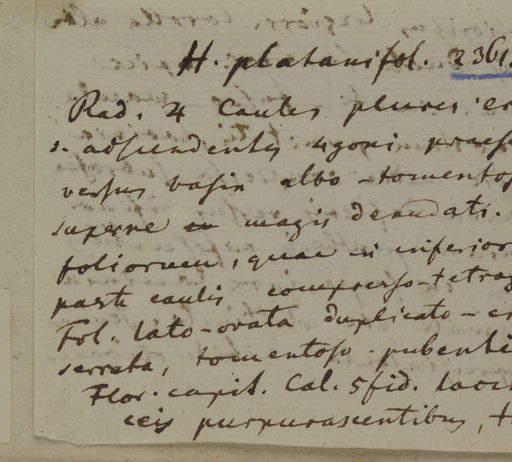 H. platanifol. 2361.
Rad. ♃ Caules plures er
s. adscendentes 4goni praes
versus basin albo-tomentos
superne magis denudati.
foliorum, quae in inferior
parte caulis compresso-tetrag
Fol. lato-ovata duplicato-cr
serrata, tomentoso-pubenti
Flor. capit. Cal. 5fid. laci
ceis purpurascentibus, t